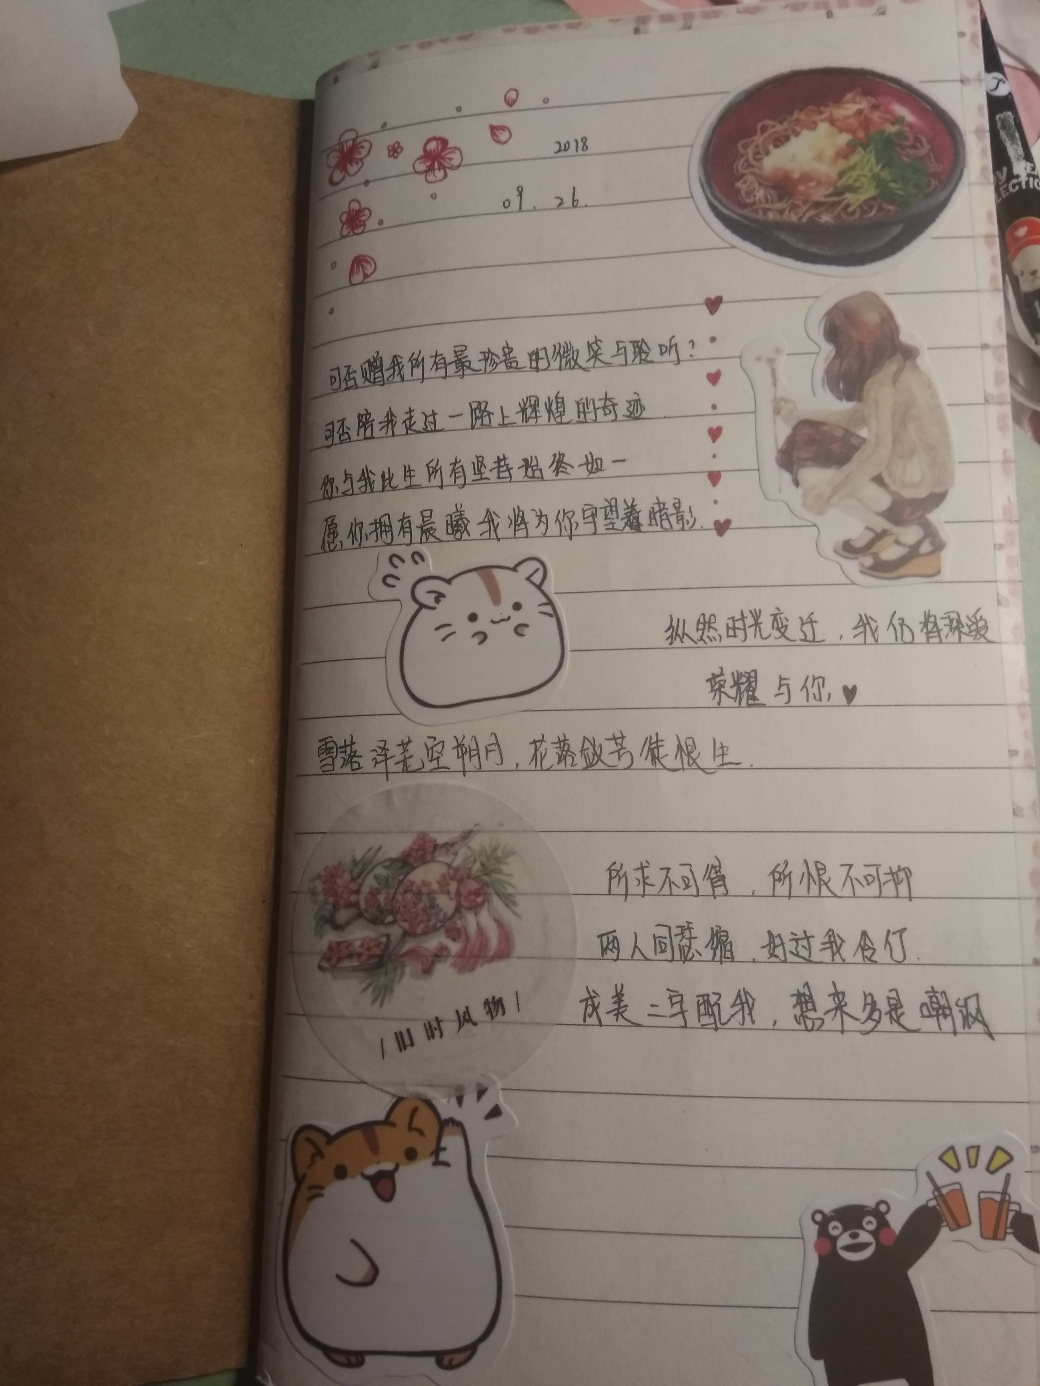 2018
09.26.
可否赠我所有最珍贵的微笑与聆听？
可否陪我走过一路上辉煌的奇迹
你与我此生所有坚苦始终如一
愿你拥有晨曦我将为你守望着暗影.
纵然时光变迁，我仍将深爱
荣耀与你，
雪落泽芜空朔月，花落敛芳徒恨生.
所求不可得，所恨不可抑
两人同瑟缩，好过我伶仃.
成美二字配我，想来多是嘲讽
旧时风物